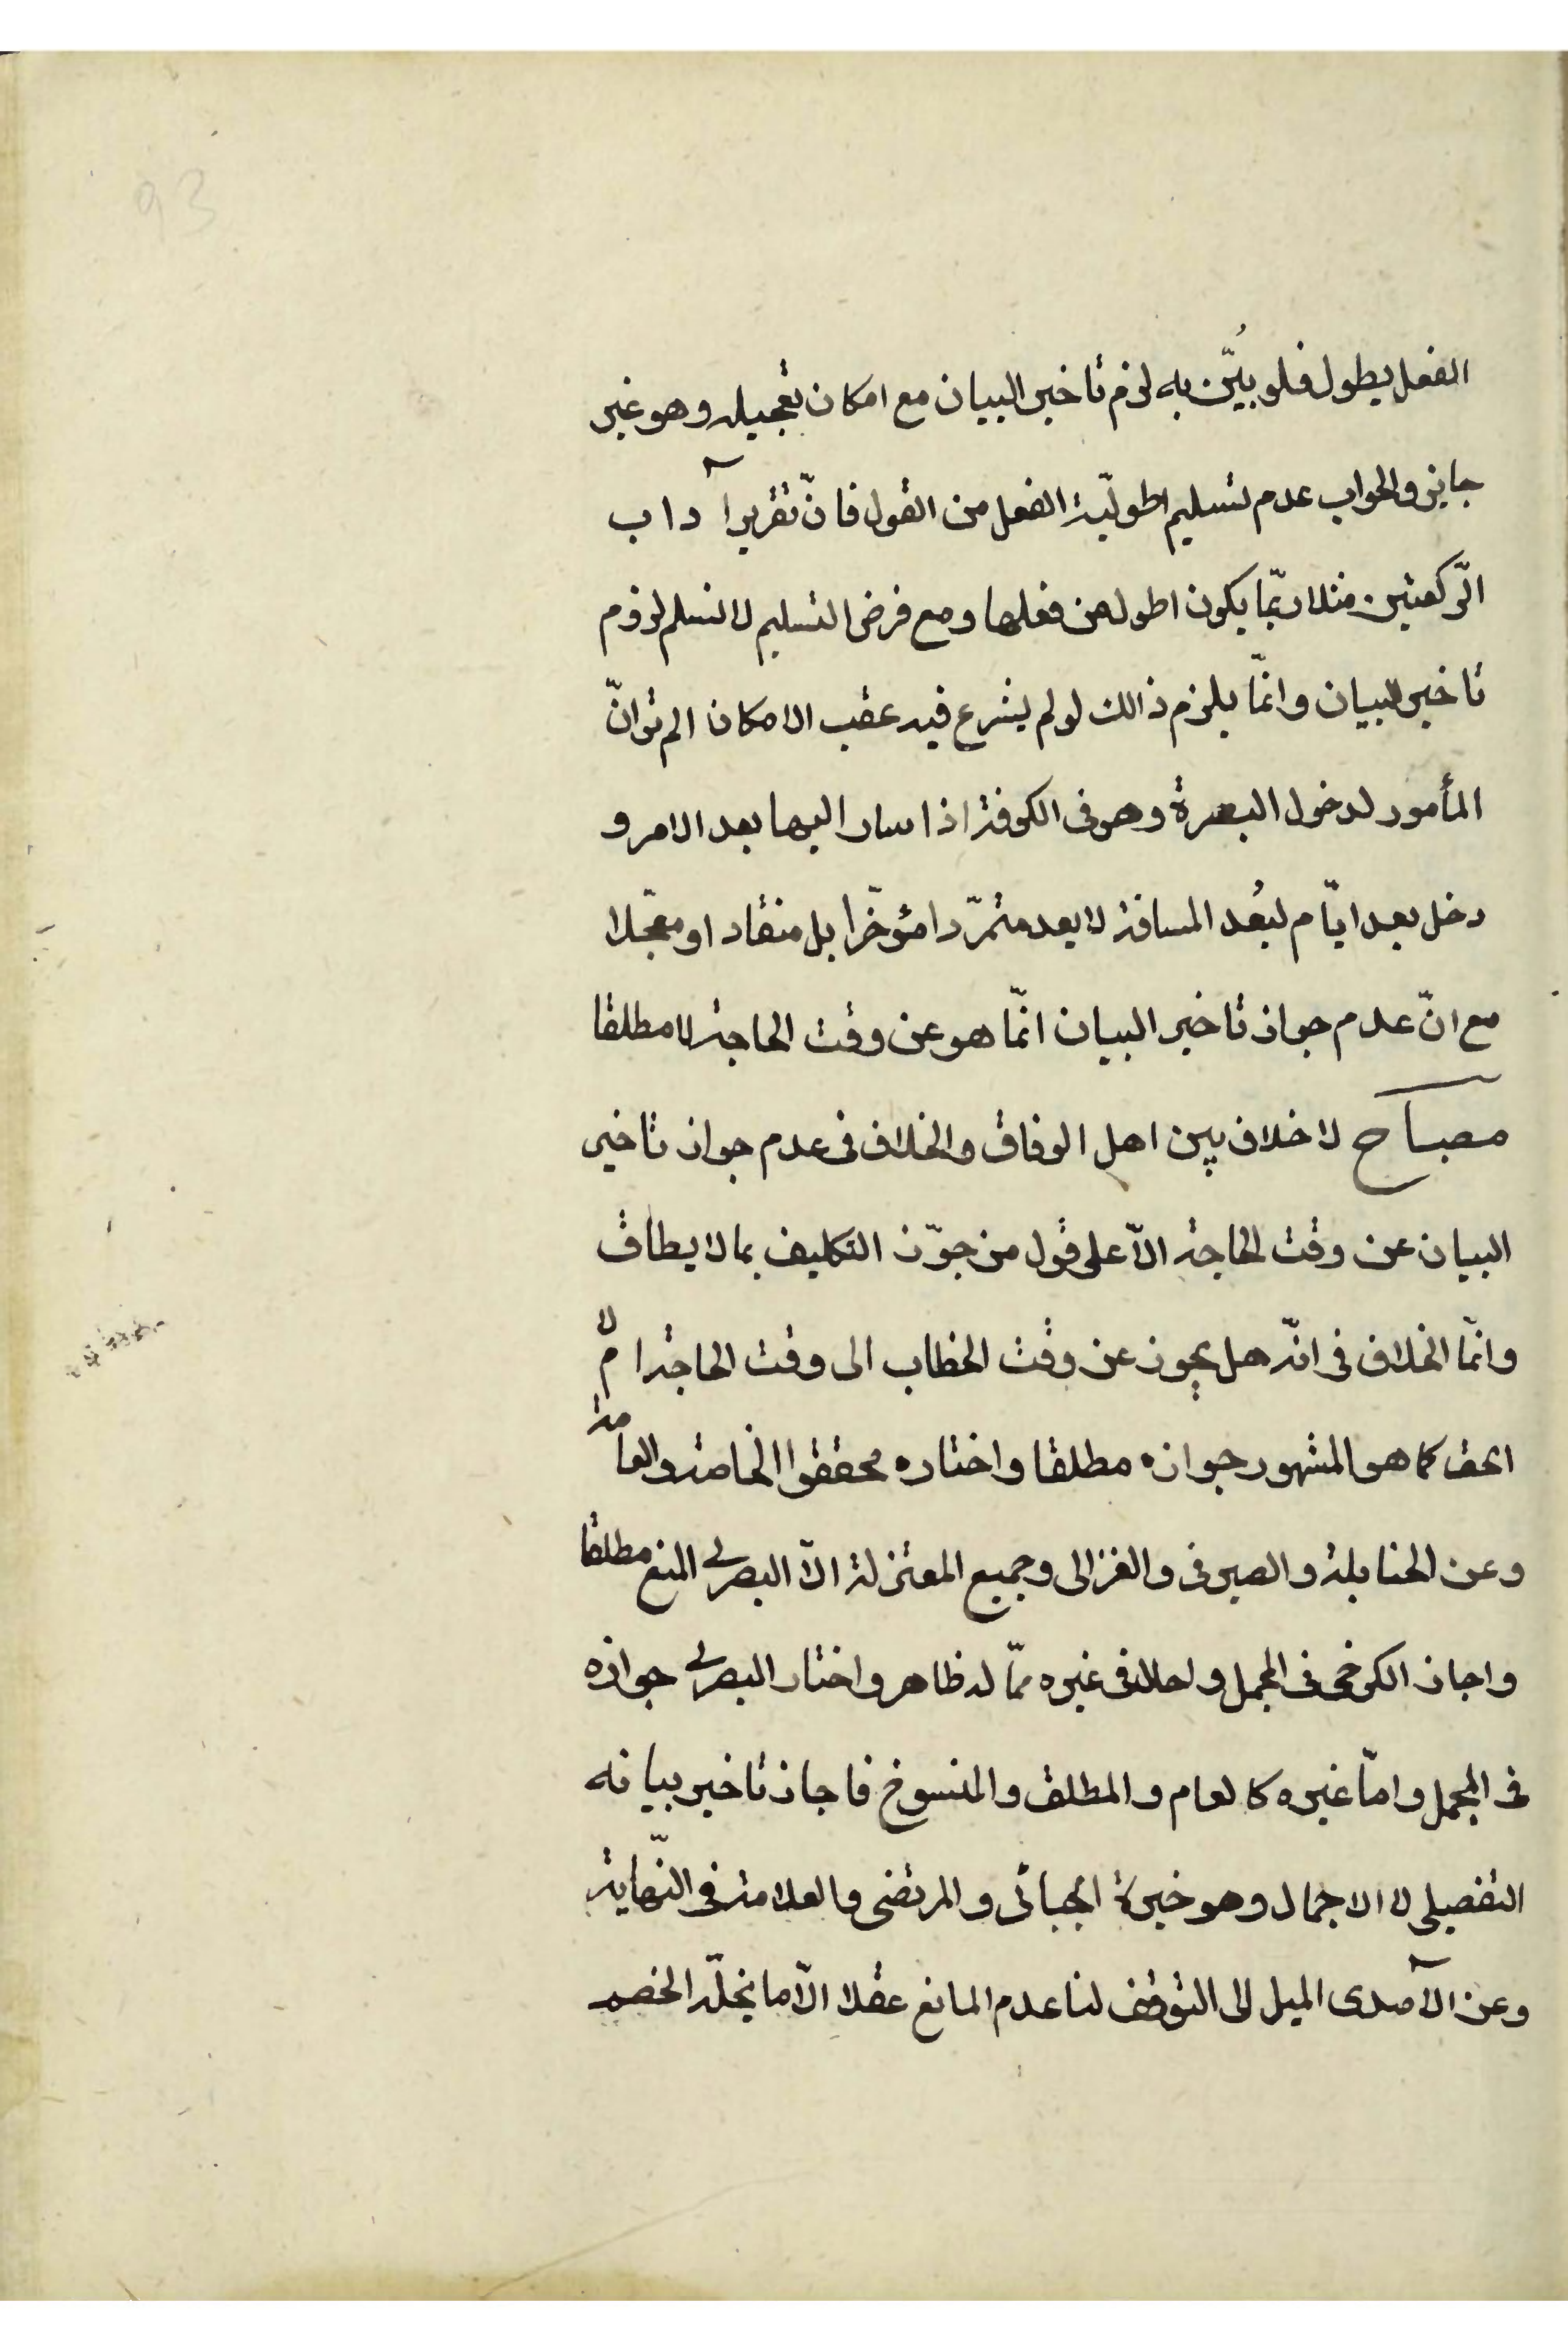 93
الفعل يطول فلو بُيّن به لزم تاخير البيان مع امكان تعجيله وهو غير
جايز والجواب عدم تسليم اطوليّة الفعل من القول فانّ تقرير آداب
الرّكعتين مثلا ربّما يكون اطول من فعلها ومع فرض التسليم لا نسلم لزوم
تاخير البيان وانّما يلزم ذالك لو لم يشرع فيه عقب الامكان الم تر انّ
المأمور لدخول البصرة وهو فى الكوفة اذا سار اليها بعد الامر و
دخل بعد ايّام لبُعد المسافة لا يعد متمرّدا مؤخّرا بل منقادا ومعجّلا
مع انّ عدم جواز تاخير البيان انّما هو عن وقت الحاجة لا مطلقا
مصباح لا خلاف بين اهل الوفاق والخلاف فى عدم جواز تاخير
البيان عن وقت الحاجة الّا على قول من جوّز التكليف بما لا يطاق
وانّما الخلاف فى انّه هل يجوز عن وقت الخطاب الى وقت الحاجة ام لا
الحق كما هو المشهور جوازه مطلقا واختاره محققوا الخاصة والعامة
وعن الحنابلة والصيرفى والغزالى وجميع المعتزلة الّا البصرى المنع مطلقا
واجاز الكرخى فى المجمل و فى غيره ممّا له ظاهر واختار البصرى جوازه
فى المجمل وامّا غيره كالعام والمطلق والمنسوخ فاجاز تاخير بيانه
التفصيلى لا الاجمال وهو خيرة الجبائى والمرتضى والعلامة فى النّهاية
وعن الآمدى الميل الى التوقف لنا عدم المانع عقلا الّا ما الخصم